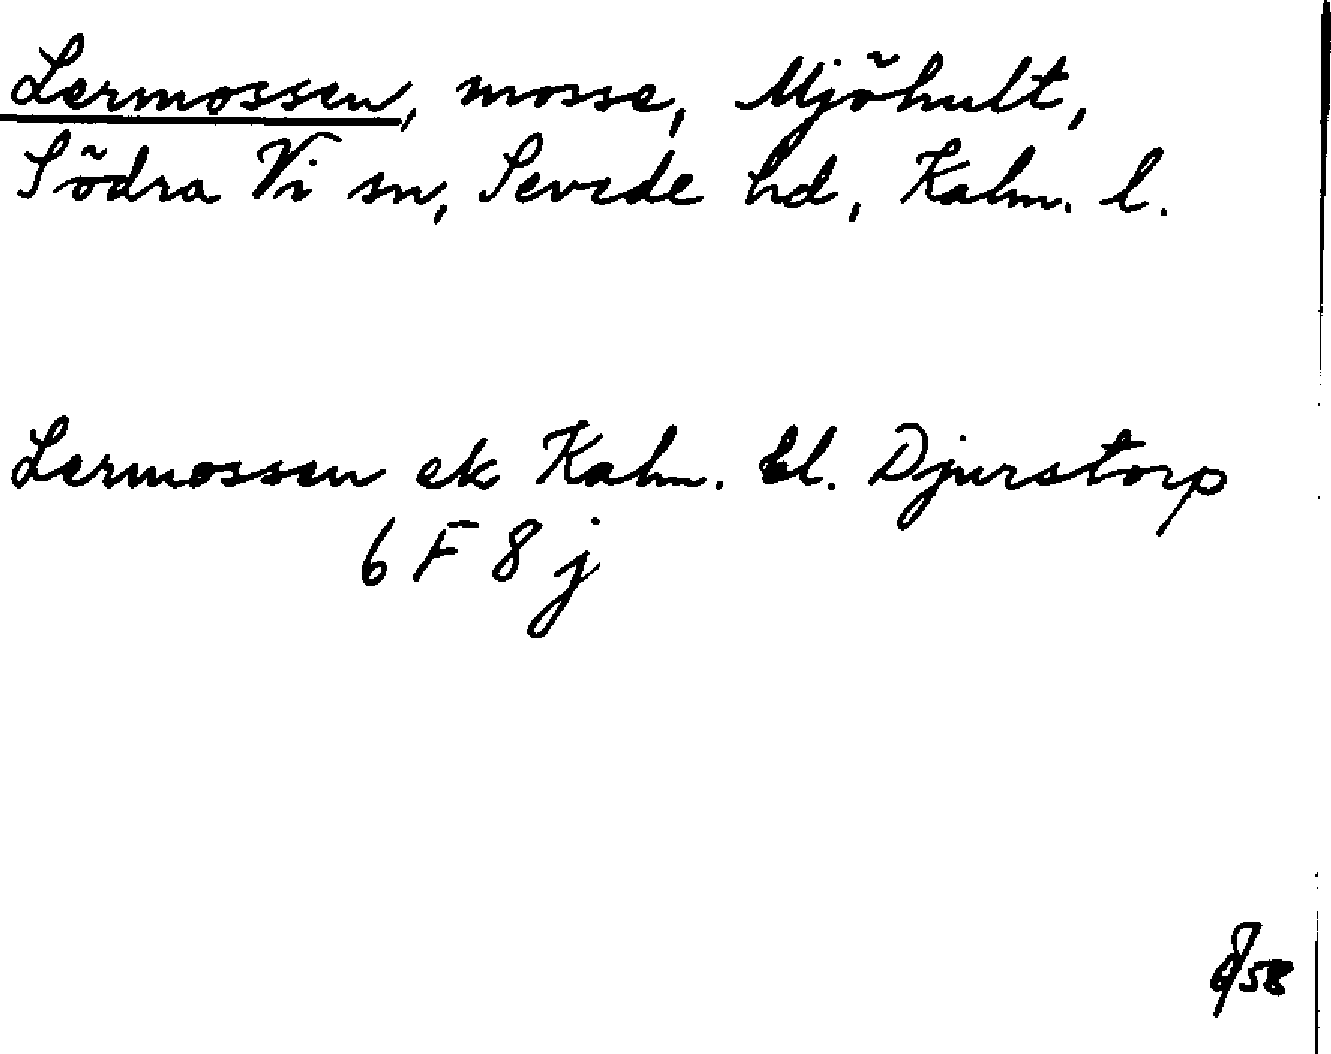 Lermossen, mosse, Mjöhult,
Södra Vi sn, Sevede hd, Kalm. l.
Lermossen ek Kalm. bl. Djurstorp
6 F 8 j
58